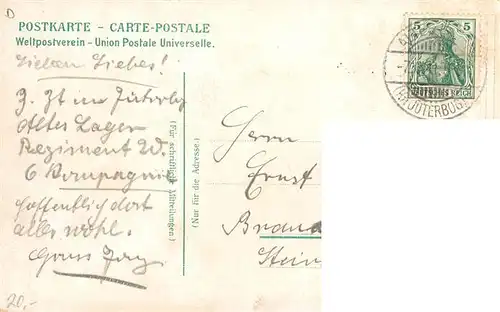 POSTKARTE – CARTE-POSTALE
Weltpostverein – Union Postale Universelle.
5 5
DEUTSCHES REICH
JÜTERBOG
Lieben Liebes!
z. Zt im Jüterbog
Altes Lager
Regiment
6 Kompagnie
hoffentlich dort
alles wohl.
Gruss
20,-
(Für schriftliche Mitteilungen)
(Nur für die Adresse.)
Herrn
Ernst